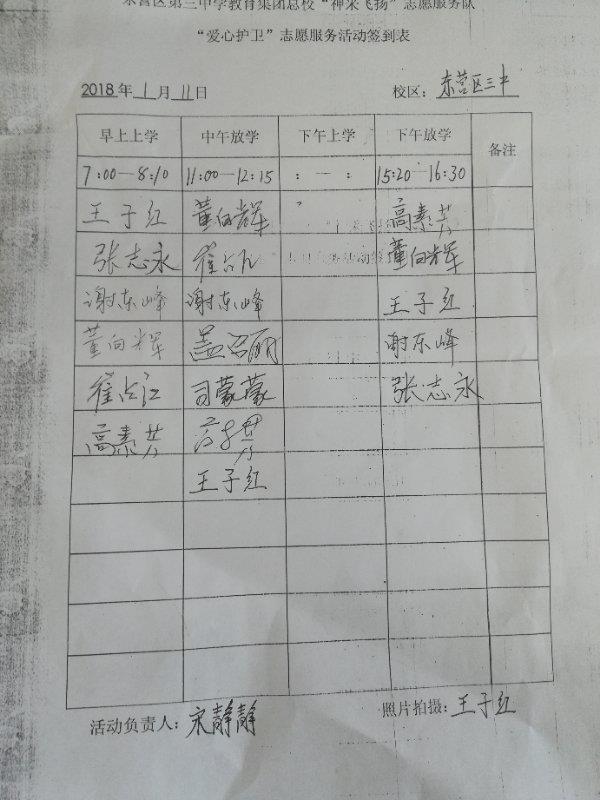 东营区第三中学教育集团总校“神采飞扬”志愿服务队
“爱心护卫”志愿服务活动签到表
2018年1月11日 校区：东营区三中
早上上学 中午放学 下午上学 下午放学 备注
7:00—8:10 11:00—12:15 :—: 15:20—16:30
王子红 董向辉 高素芳
张志永 崔占 董向辉
谢东峰 谢东峰 王子红
董向辉 盖召丽 谢东峰
崔占江 司蒙蒙 张志永
高素芳
王子红
活动负责人：宋静静 照片拍摄：王子红